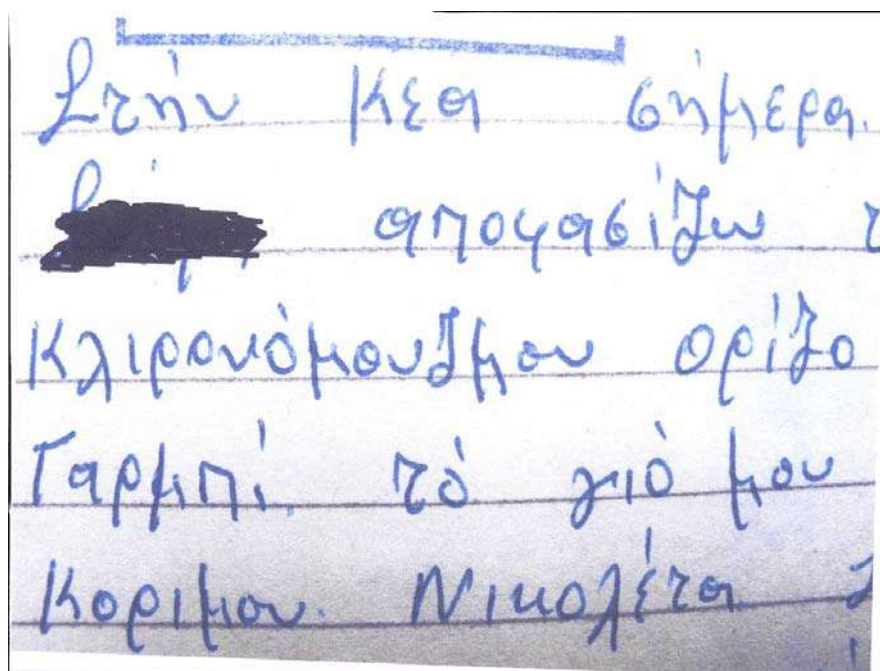 Στήν Κεα σήμερα.
αποφασίζω τ
Κλιρονόμουζμου ορίζο
Γαρμπί. τό γιό μου
Κοριμου. Νικολέτα